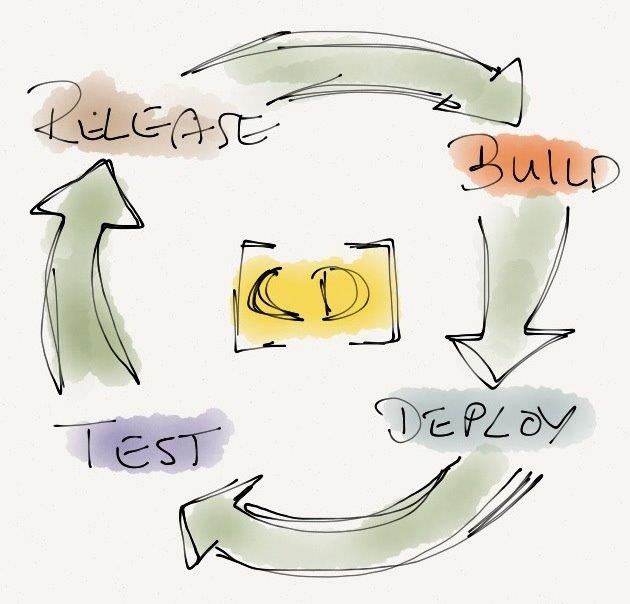 RELEASE
BUILD
CD
DEPLOY
TEST